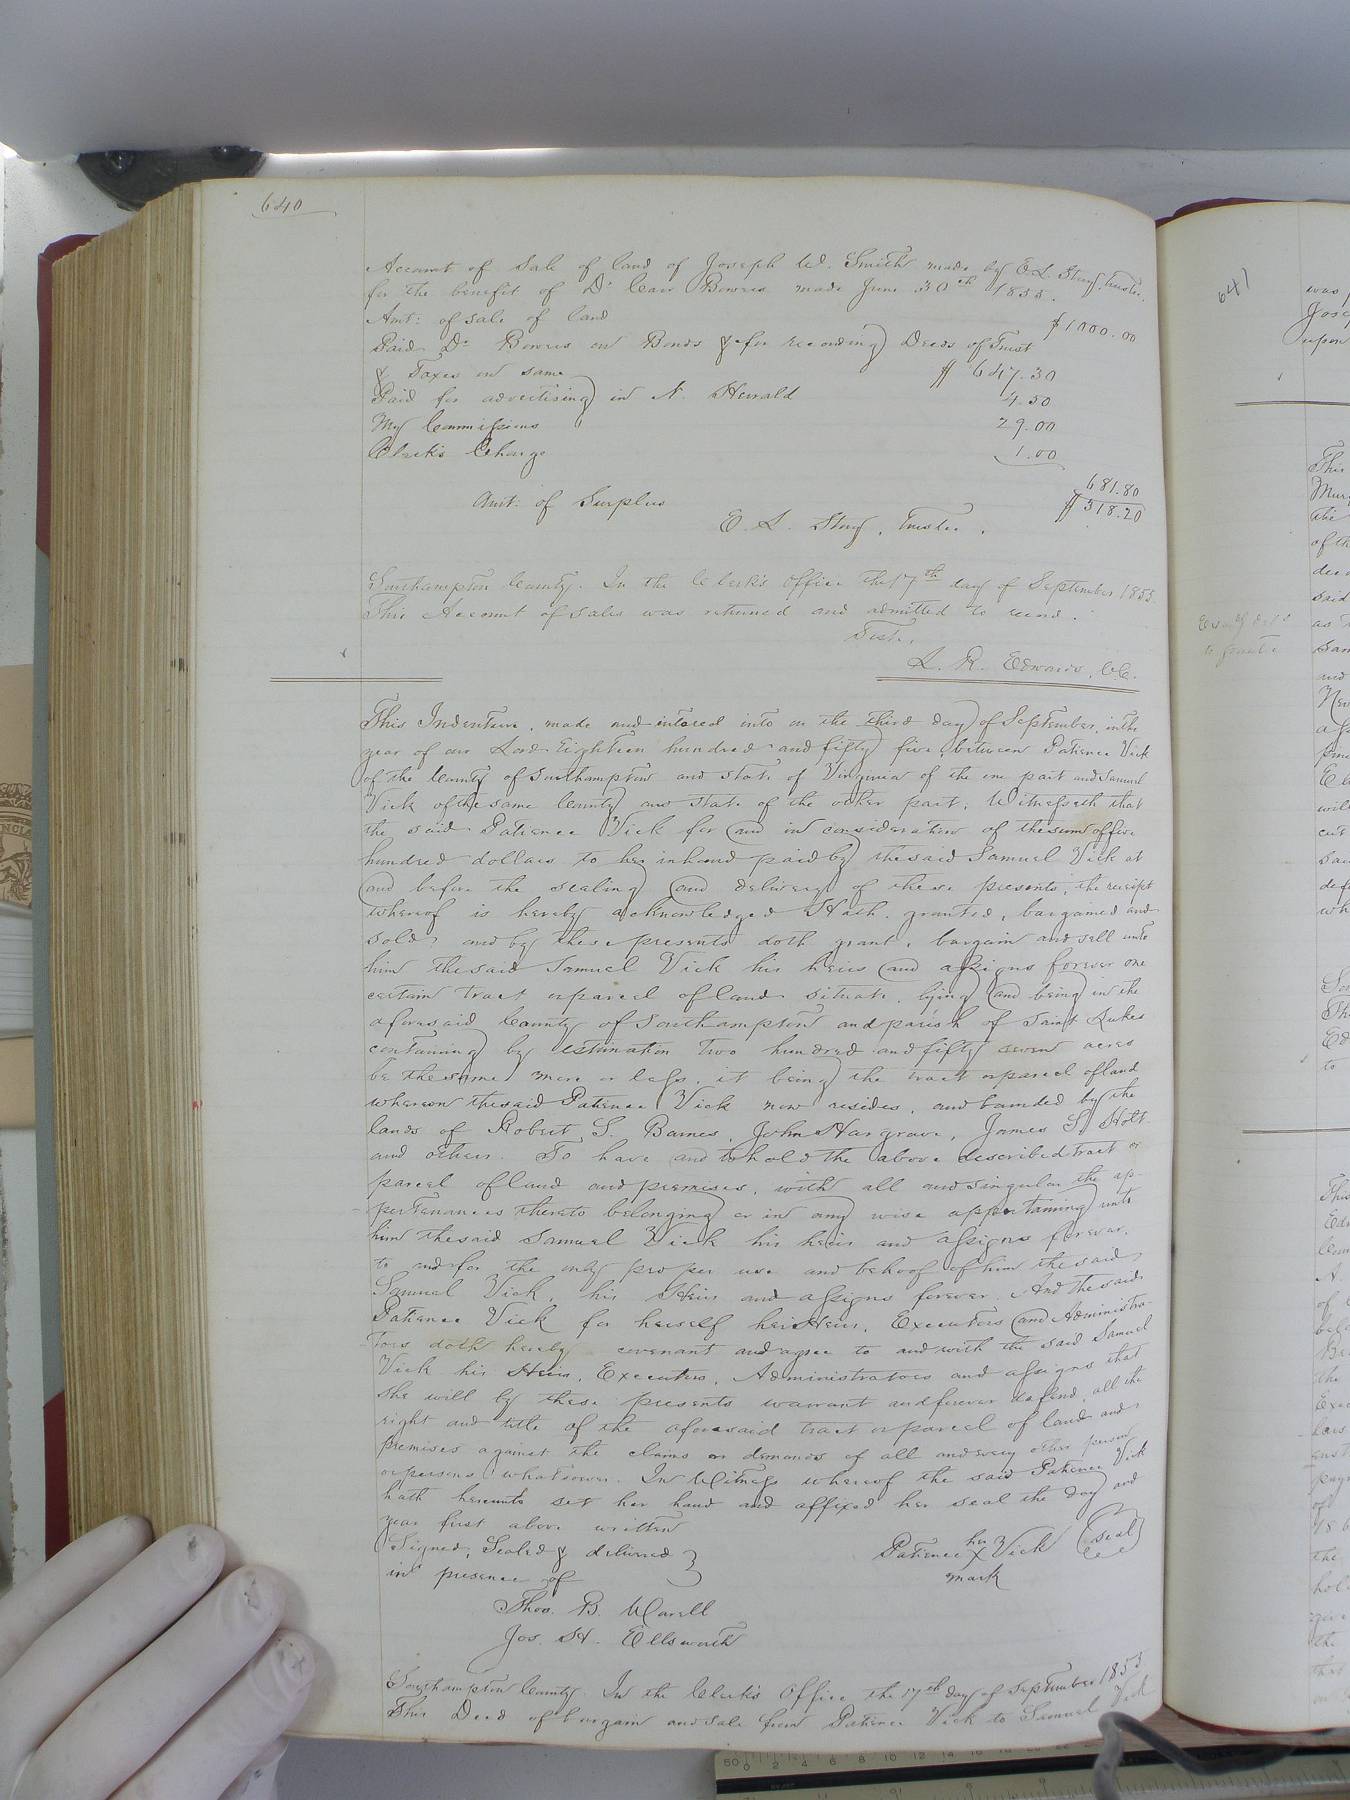 640
Account of Sale of land of Joseph W. Smith made by E. L. Story, Trustee,
for the benefit of Dr Carr Bowers made June 30th 1855.
Amt: of sale of land $1000.00
Paid Dr Bowers on Bonds & for recording Deeds of Trust
& Taxes on same $647.30
Paid for advertising in N. Herrald 4.50
My Commissions 29.00
Clerk's Charge 1.00
681.80
Amt: of Surplus $318.20
E. L. Story, Trustee.
Southampton County. In the Clerk's Office the 17th day of September 1855.
This Account of sales was returned and admitted to record.
Teste.
L. R. Edwards, C.C.
This Indenture, made and entered into on the third day of September, in the
year of our Lord Eighteen hundred and fifty five, between Patience Vick
of the County of Southampton and State of Virginia of the one part and Samuel
Vick of the same County and State of the other part, Witnesseth that
the said Patience Vick for and in consideration of the sum of five
hundred dollars to her in hand paid by the said Samuel Vick at
and before the sealing and delivery of these presents, the receipt
whereof is hereby acknowledged Hath, granted, bargained and
sold and by these presents doth grant, bargain and sell unto
him the said Samuel Vick his heirs and assigns forever one
certain tract or parcel of land situate, lying and being in the
aforesaid County of Southampton and parish of Saint Lukes
containing by estimation Two hundred and fifty seven acres
be the same more or less, it being the tract or parcel of land
whereon the said Patience Vick now resides, and bounded by the
lands of Robert S. Barnes, John Hargrave, James S. Holt
and others. To have and to hold the above described tract or
parcel of land and premises, with all and singular the ap-
pertenances thereto belonging or in any wise appertaining unto
him the said Samuel Vick his heirs and assigns forever,
to and for the only proper use and behoof of him the said
Samuel Vick, his Heirs and assigns forever. And the said
Patience Vick for herself her Heirs, Executors and Administra-
tors doth hereby covenant and agree to and with the said Samuel
Vick his Heirs, Executors, Administrators and assigns that
she will by these presents warrant and forever defend, all the
right and title of the aforesaid tract or parcel of land and
premises against the claims or demands of all and every other person
or persons whatsoever. In Witness whereof the said Patience Vick
hath hereunto set her hand and affixed her seal the day and
year first above written
Signed, Sealed & delivered
in presence of
Patience her X mark Vick (Seal)
Thos. B. Worrell
Jos. H. Ellsworth
Southampton County. In the Clerk's Office the 17th day of September 1855
This Deed of bargain and sale from Patience Vick to Samuel Vick
641